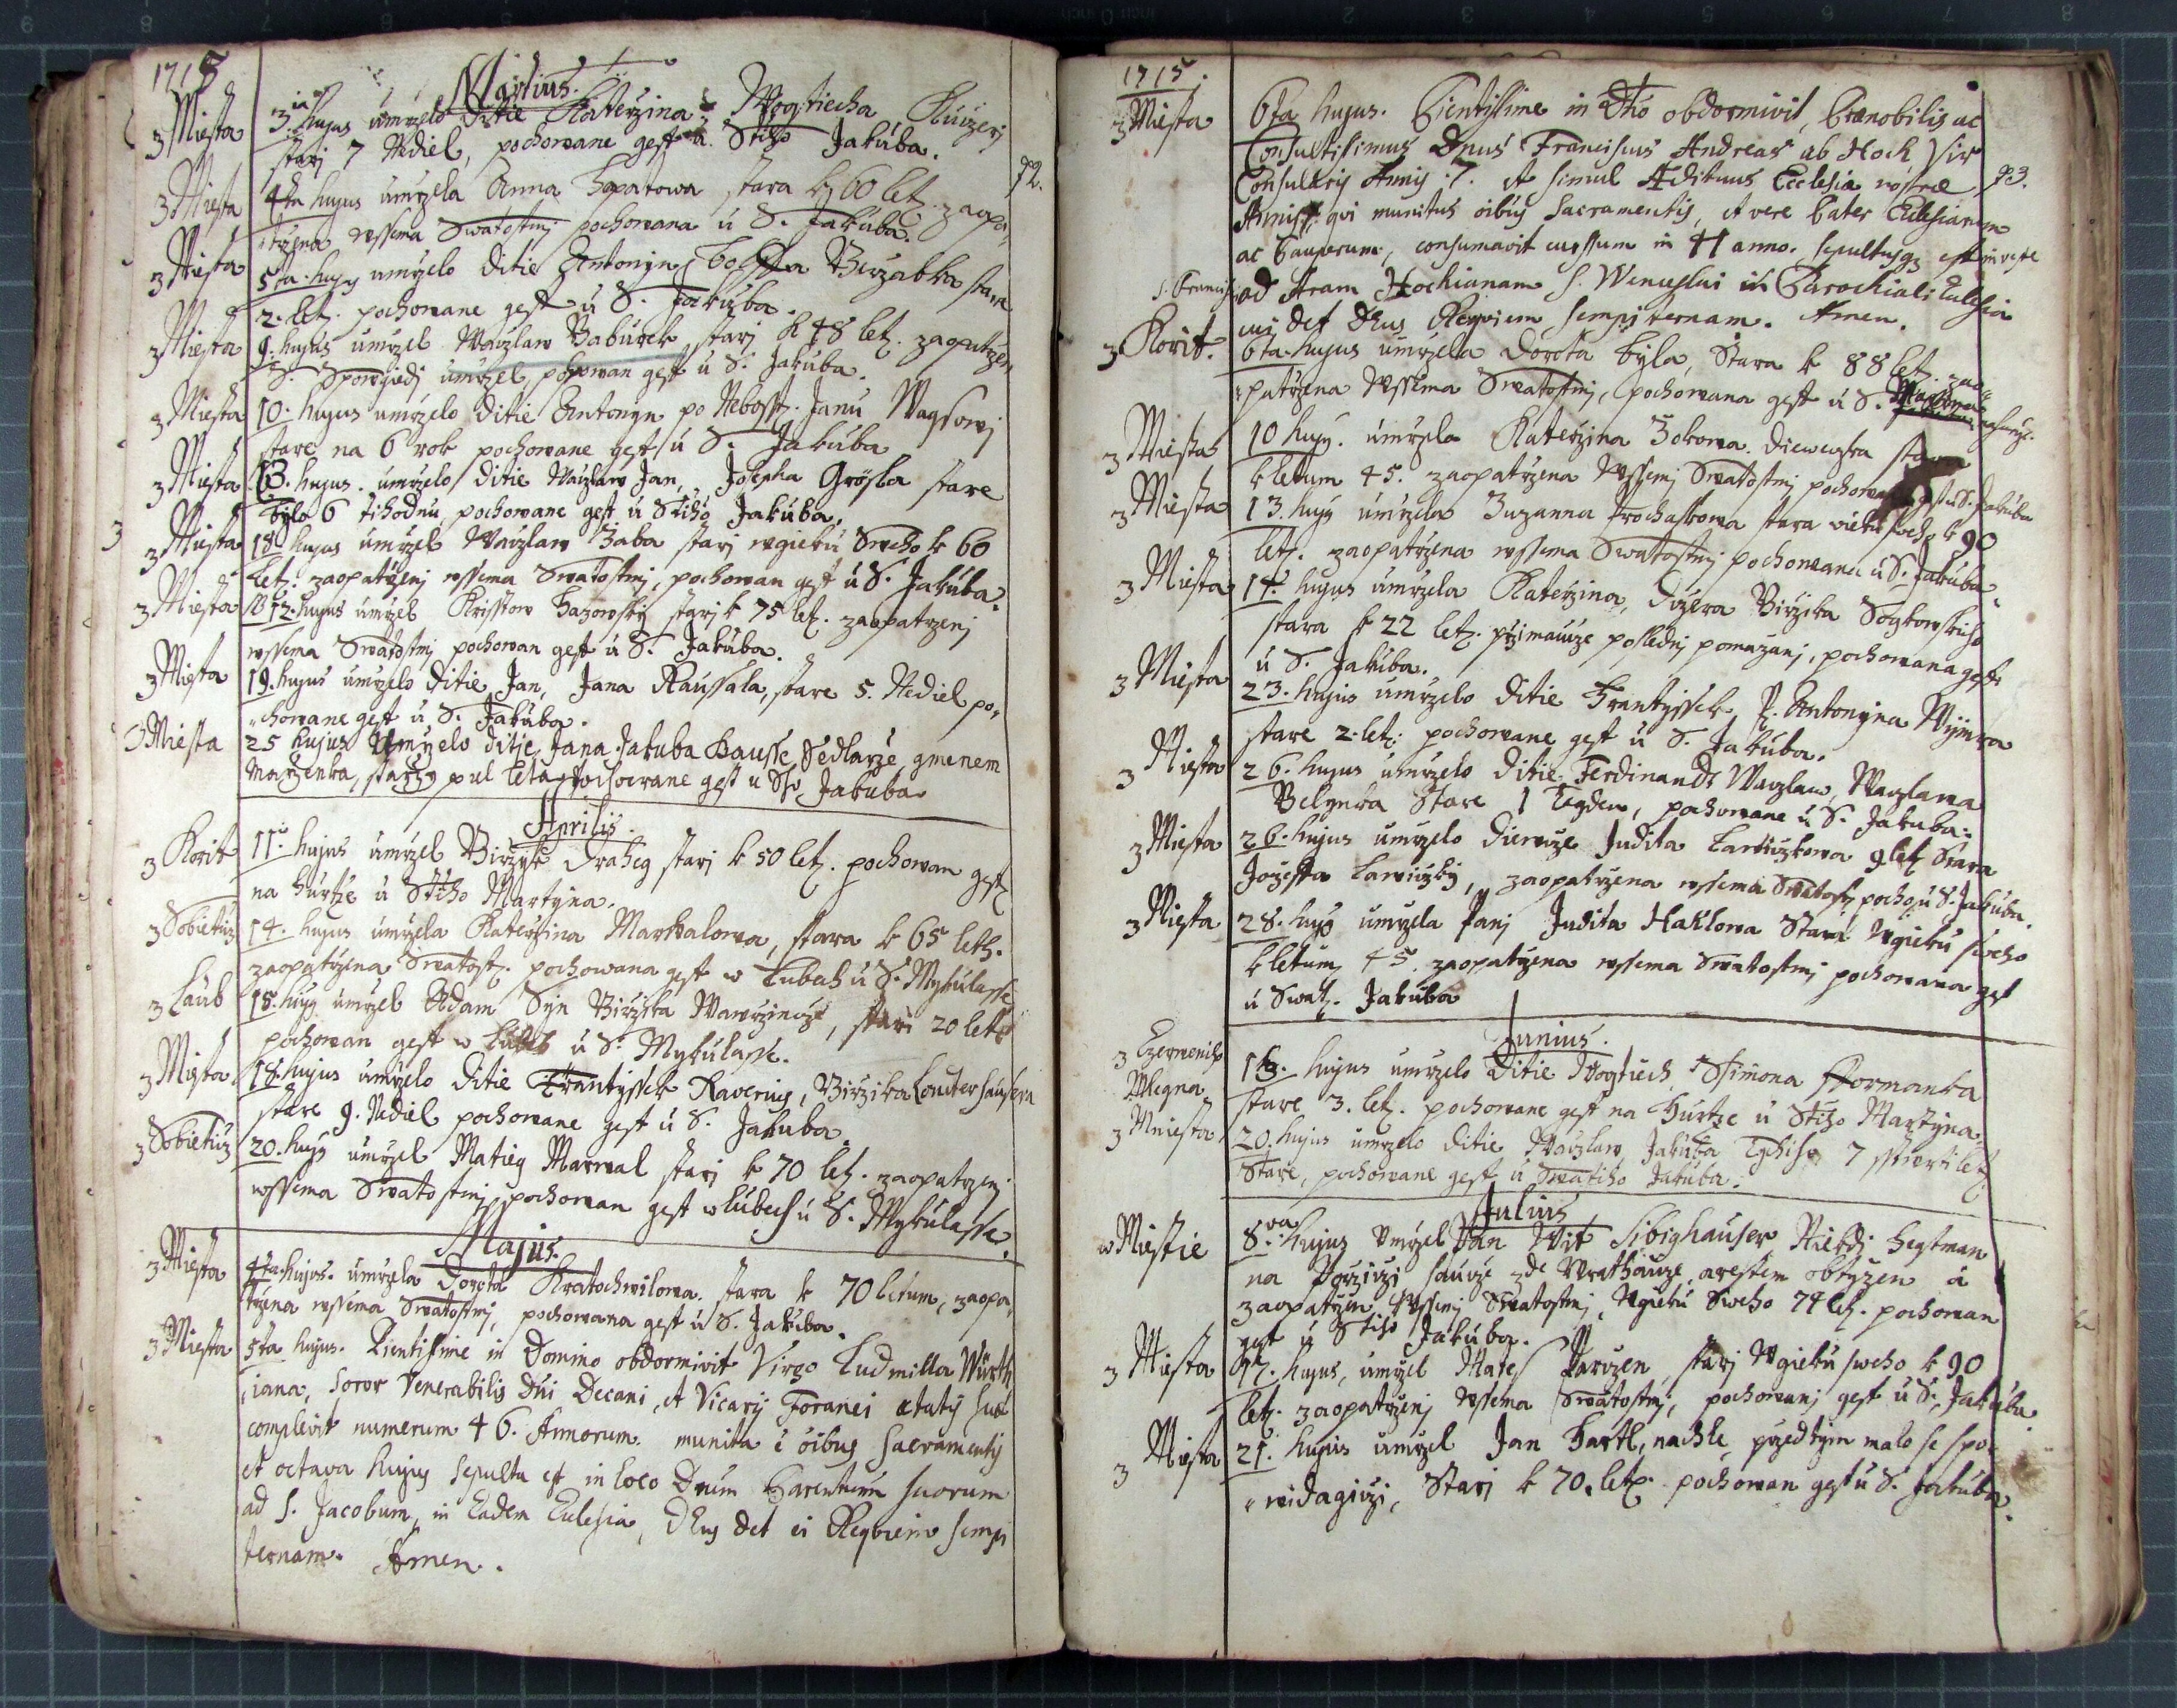 1715
Martius.
z Miesta 3. hujus umrzelo Ditie Katerzina Wogtiecha Kuizerj
starj 7 Nediel, pochowane gest u Stiho Jakuba.
72.
z Miesta 4ta hujus umrzela Anna stara k 60 let. zaopa-
trzena wssema Swatostmj pochowana u S. Jakuba.
z Miesta 5ta hujus umrzelo Ditie Antonyn, Berzabka stare
2. let. pochowane gest u S. Jakuba.
z Miesta 9. hujus umrzel Waczlaw Baburek starj k 48 let. zaopatrzen
S. Spowiedj umrzel, pochowan gest u S. Jakuba.
z Miesta 10. hujus umrzelo Ditie Antonyn po Nebosst. Janu Wagsowj
stare na 6 rok pochowane gest u S. Jakuba
z Miesta 13. hujus umrzelo Ditie Waczlaw Jan, Josepha Grösla stare
bylo 6 tihodnu pochowane gest u Stiho Jakuba.
z Miesta 18 hujus umrzel Waczlaw Zaba starj wgieku Sweho k 60
Let. zaopatrzenj wssema Swatostmj, pochowan gest u S. Jakuba.
z Miesta NB 12. hujus umrzel Krisstow starj k 75 let. zaopatrzenj
wssema Swatostmj pochowan gest u S. Jakuba.
z Miesta 19. hujus umrzelo Ditie Jan, Jana Raussala, stare 5. Nediel po-
chowane gest u S. Jakuba.
z Miesta 25 hujus Umrzelo ditie Jana Jakuba Hausse Sedlarze gmenem
Marzenka, pul leta pochowane gest u Sho Jakuba.
Aprilis.
z Korit 11. hujus umrzel Birzyk Draheg starj k 50 let. pochowan gest
na hurtze u Stiho Martyna.
z Sobietucz 14. hujus umrzela Katerzina Markalowa, stara k 65 leth.
zaopatrzena Swatost. pochowana gest w Lubech u S. Mykulasse
z Laub 15. hujus umrzel Adam Syn Birzika Wawrzincze, starj 20 let
pochowan gest w Lubech u S. Mykulasse.
z Miesta 18. hujus umrzelo Ditie Frantyssek Xaverius, Birzika
stare 9. Nediel pochowane gest u S. Jakuba.
z Sobietucz 20. hujus umrzel Matieg Marwal starj k 70 let. zaopatrzenj
wssema Swatostmj pochowan gest w Lubech u S. Mykulasse.
Majus.
z Miesta 4ta hujus. umrzela Dorota Kratochwilowa. stara k 70 letum, zaopa-
trzena wssema Swatostmj, pochowana gest u S. Jakuba.
z Miesta 5ta hujus. Pientissime in Domino obdormivit Virgo Ludmilla Würth
iana, soror Venerabilis Dni Decani, et Vicarij Foranei ætatis suæ
complevit numerum 46. Annorum. munita oibus Sacramentis
et octava hujus sepulta est in loco Dnum Parentum suorum
ad S. Jacobum, in Eadem Eclesia, DEus det ei Reqviem sempi
ternam. Amen.
1715.
z Miesta 6ta hujus. Pientissime in Dno obdormivit, Prænobilis ac
Consultissimus Dnus Franciscus Andreas ab Hoch Vir
Consularis Annis .7. et simul Ædituus Ecclesiæ nostræ 73.
Annis qvi munitus oibus Sacramentis, et vere Pater Eclesiarum
ac Pauperum, consumavit cursum in 41 anno. sepultusq; est in veste
S. Francisc. ad Aram Hochianam S. Wenceslai in Parochiali Eclesia
cui det DEus Reqviem sempiternam. Amen.
z Korit. 6ta hujus umrzela Dorota Byla, Stara k 88 let. zao-
patrzena Wssema Swatostmj, pochowana gest u S. Martina
z Miesta 10 hujus. umrzela Katerzina Zokowa. stara
k letum 45. zaopatrzena Wssemj Swatostmj pochowana gest u S. Jakuba
z Miesta 13. hujus umrzela Zuzanna Prochaskowa stara wieku sweho k 90
let. zaopatrzena wssema Swatostmj pochowana u S. Jakuba.
z Miesta 14. hujus umrzela Katerzina, dczera Birzika Sogkowskiho
stara k 22 letz. przimawze poslednj pomazanj, pochowana gest
u S. Jakuba.
z Miesta 23. hujus umrzelo Ditie Frantyssek P. Antonyna Wymra
stare 2. let. pochowane gest u S. Jakuba.
z Miesta 26. hujus umrzelo Ditie Ferdinand Waczlaw, Waczlawa
Belynka Stare 1 Tegden, pochowane u S. Jakuba.
z Miesta 26. hujus umrzelo Diewcze Judita 9 let Stara
Jozeffa zaopatrzena wssema Swatost. pocho. u S. Jakuba.
z Miesta 28. hujus umrzela Panj Judita Haklowa Stara Wgieku sweho
k letum 45. zaopatrzena wssema Swatostmj pochowana gest
u Swat. Jakuba
Junius.
z Czerwenih. Mlegna 13. hujus umrzelo Ditie Wogtiech, Ssimona Formanka
stare 3. let. pochowane gest na Hurtze u Stiho Martyna.
z Miesta 20. hujus umrzelo Ditie Waczlaw, Jakuba 7 sstwrti let
Stare, pochowane gest u Swatiho Jakuba.
Julius
w Miestie 8.va hujus Umrzel Pan Wit Sibighauser Niekdj hegtman
na Porziczi zde Wrathauze, arestem obtyzen a
zaopatrzen Wssemj Swatostmj, Wgieku Sweho 74 let. pochowan
gest u Stiho Jakuba.
z Miesta hujus, umrzel Mates starj Wgieku sweho k 90
let. zaopatrzenj Wssema Swatostmj, pochowanj gest u S. Jakuba.
z Miesta 21. hujus umrzel Jan Hartl, nachle, przedtym malo se spo-
widagiczi, Starj k 70. let. pochowan gest u S. Jakuba.